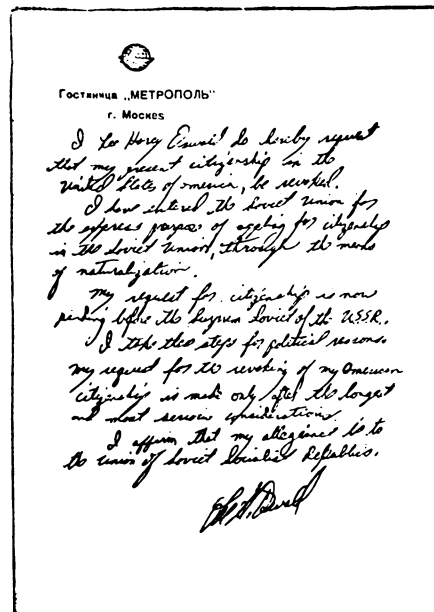 Гостиница „МЕТРОПОЛЬ"
г. Москва
I Lee Harvey Oswald do hereby request
that my present citizenship in the
United States of america, be revoked.
I have entered the Soviet Union for
the express purpose of appling for citizenship
in the Soviet Union, through the means
of naturalization.
My request for citizenship is now
pending before the Suprem Soviet of the USSR.
I take these steps for political reasons.
My request for the revoking of my American
citizenship is made only after the longest
and most serious considerations.
I affirm that my allegiance is to
the Union of Soviet Socialist Republics.